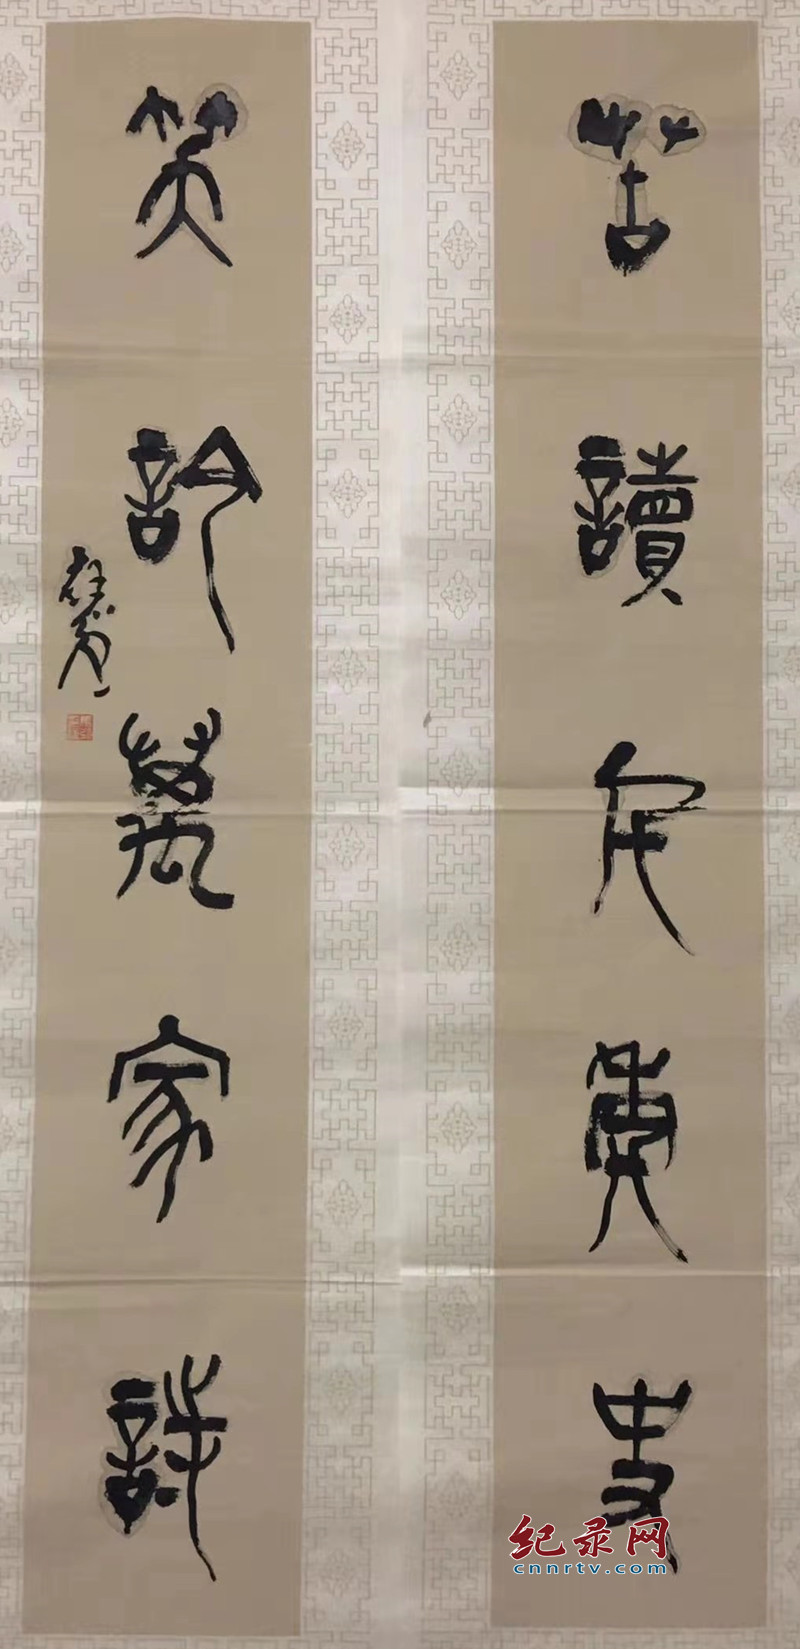 苦讀史
笑訡萬家詩
纪录网
cnnrtv.com